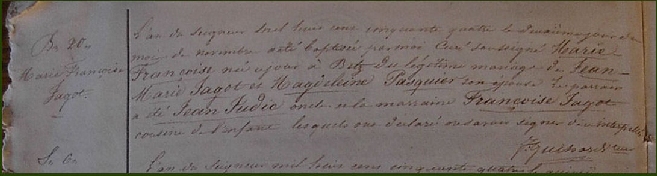 B. 20.
Marie Françoise
Jagot.
L'an du Seigneur mil huit cent cinquante quatre le deuxième jour du
mois de novembre a été baptisée par moi Curé soussigné Marie
Françoise née ce jour à du légitime mariage de Jean-
Marie Jagot et Magdeleine Pasquier son épouse. Le parrain
a été Jean oncle et la marraine Françoise Jagot
cousine de l'enfant lesquels ont déclaré ne savoir signer de ce
L'an du Seigneur mil huit cent cinquante quatre le